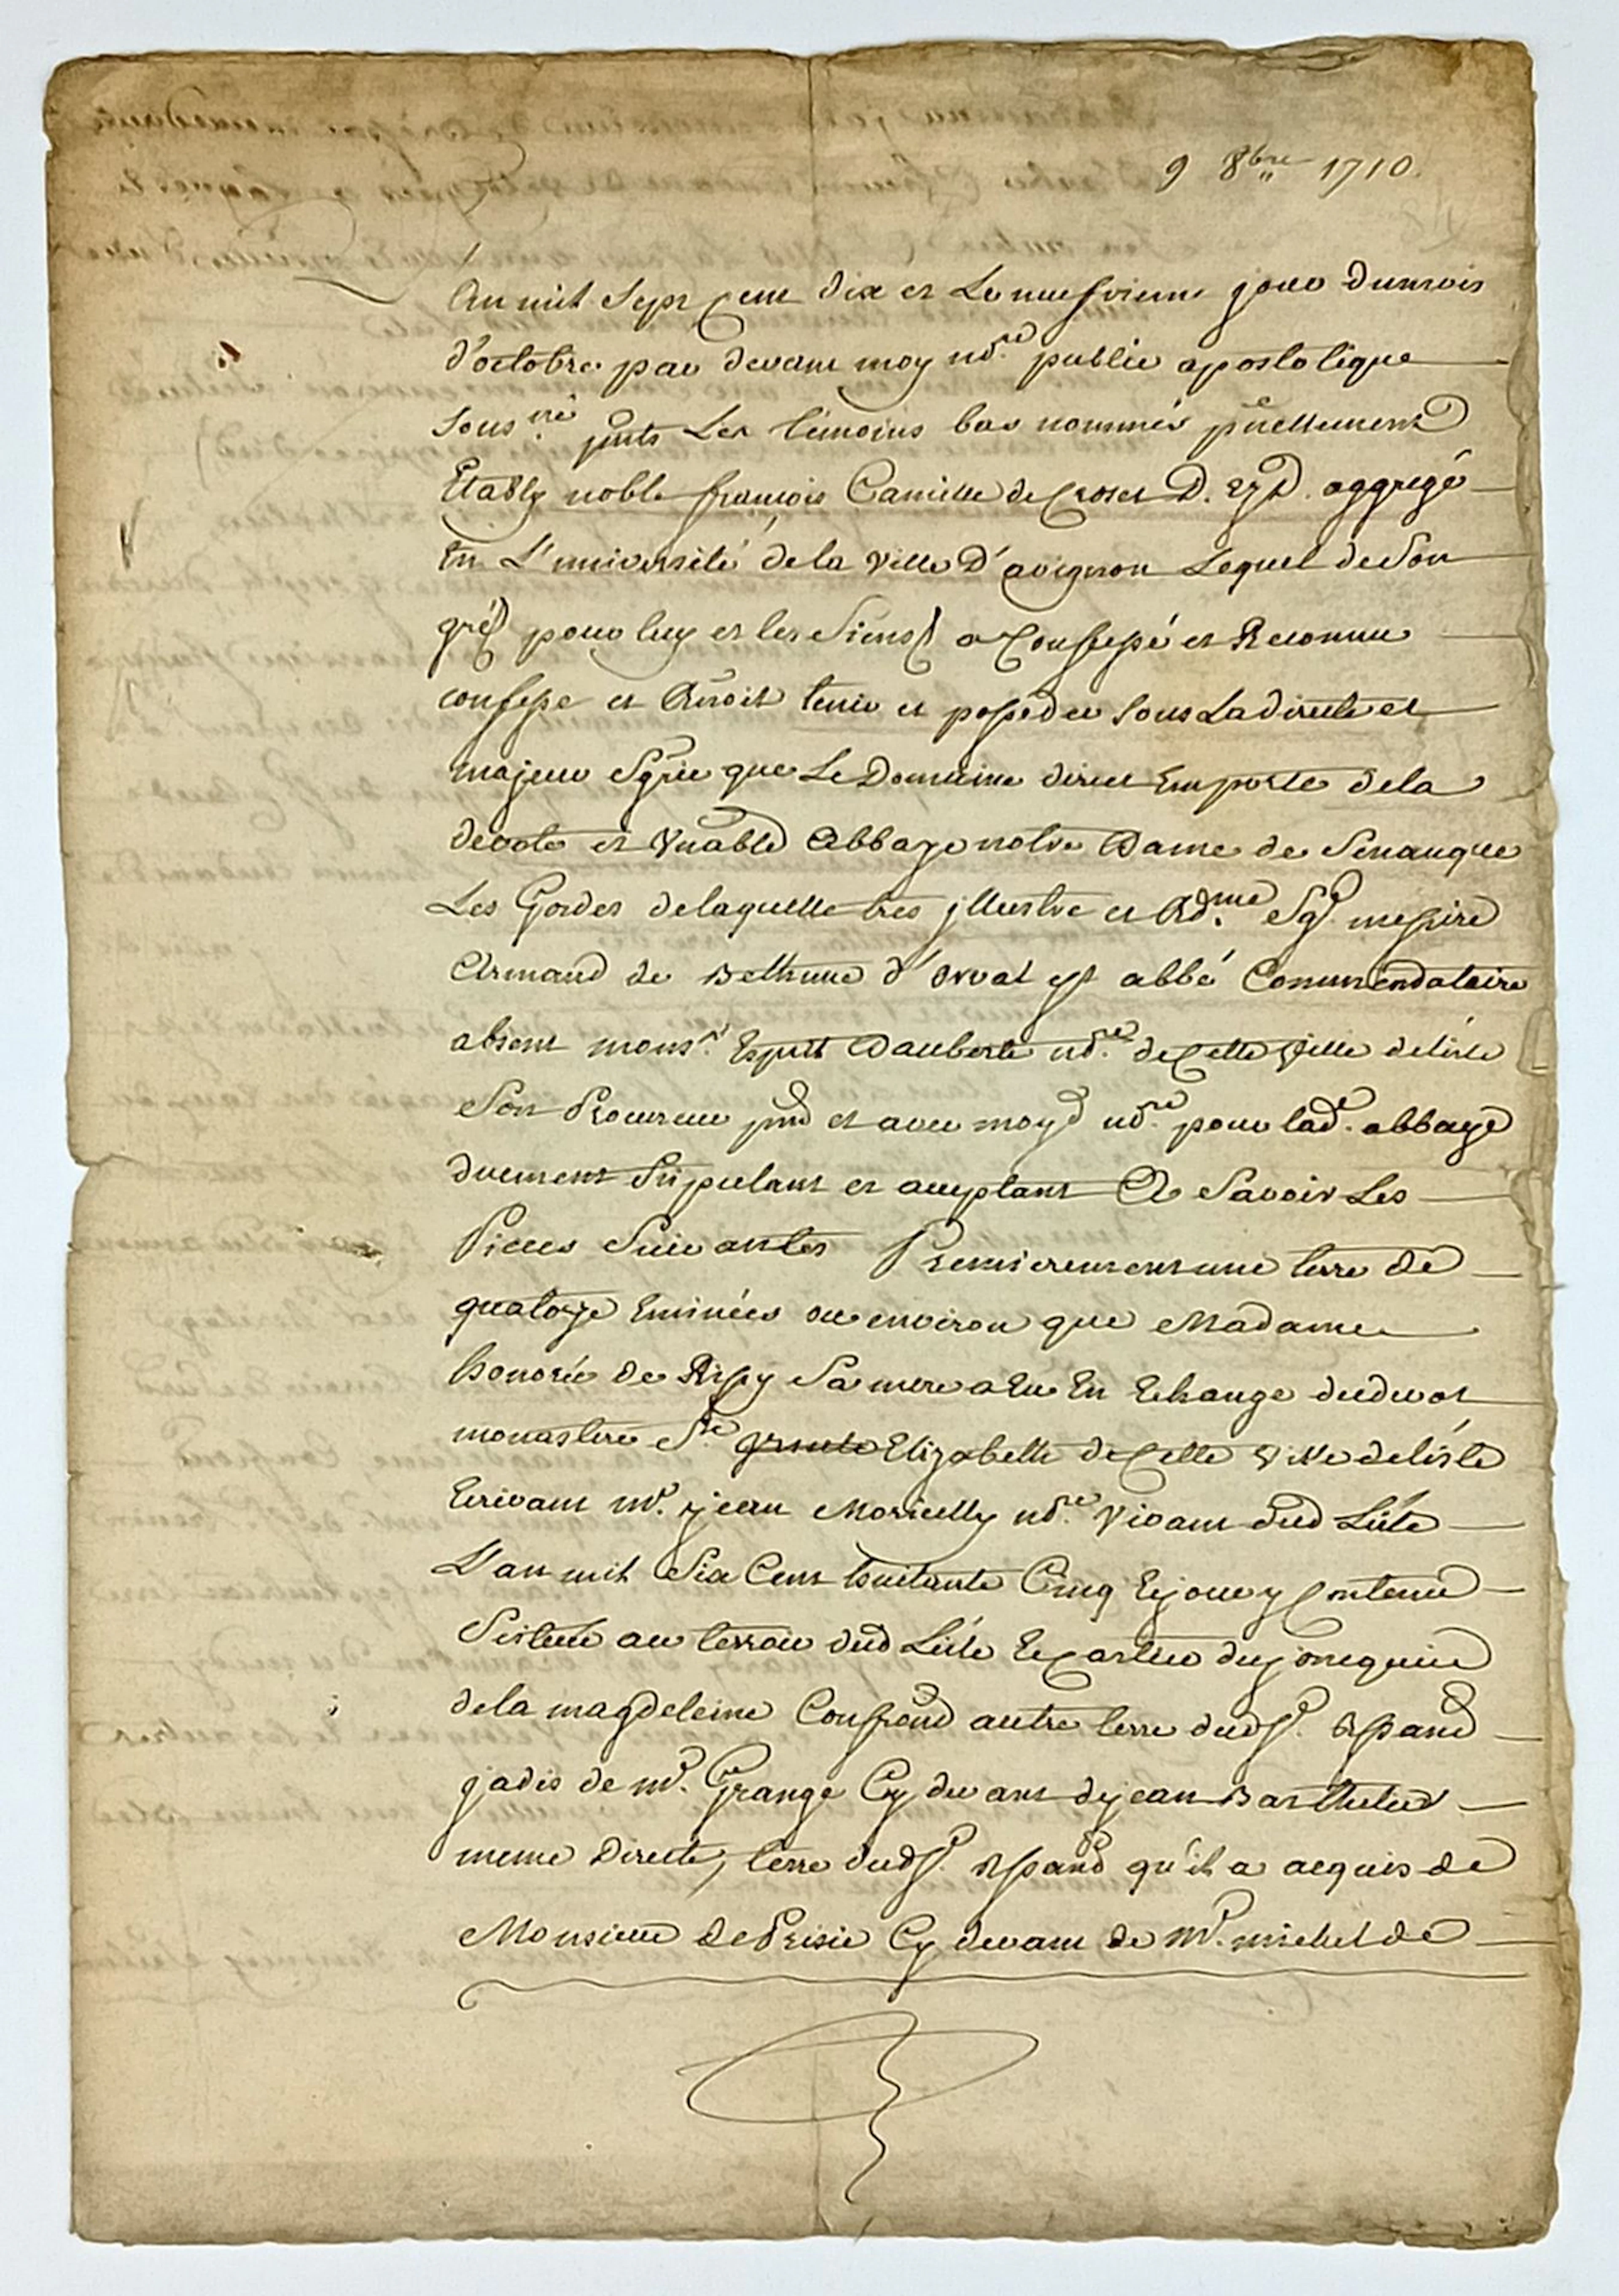 9 8bre 1710.
An mil sept cent dix et le neufvieme jour du mois
d'octobre par devant moy nore public apostolique
sous.né pnts Les témoins bas nommés pnellement
Etably noble francois Camille de Croset D. ez D. aggregé
En L'université de la ville D'avignon Lequel de son
gré pour luy et les siens a Confessé et Reconnu
confesse et tenir et posseder sous La directe et
majeur Sgrie que Le Domaine direct Emporte dela
devote et vnable Abbaye notre Dame de Senanque
Les Gordes delaquelle tres jllustre et Rdme Sgr messire
Armand de Bethune d'orval est abbé Commendataire
absent monsr. Esprit Dauberte nore de Cette ville de lisle
Son Procureur pnt et avec moyd nore pour lade. abbaye
duement stipulant et acceptant A Savoir Les
Pieces Suivantes Premierement une terre de
quatorze Eminées ou environ que Madame
honorée de Sa mere a Eu En Echange dudevot
monastere Ste Elizabette de Cette ville de lisle
Ecrivant me. jean Moricelly nore vivant dud Lisle
L'an mil Six Cent huitante Cinq Ejour y Contenu
Scituée au terroir dud Lisle Equartier du jonquier
dela magdeleine Confrond autre terre dud sr. Rpand
jadis de mr. Grange Cy devant de jean Barthelier
meme Directe, terre dud sr. Rpand qu'il a acquis de
Monsieur de Cy devant de mr. michel de